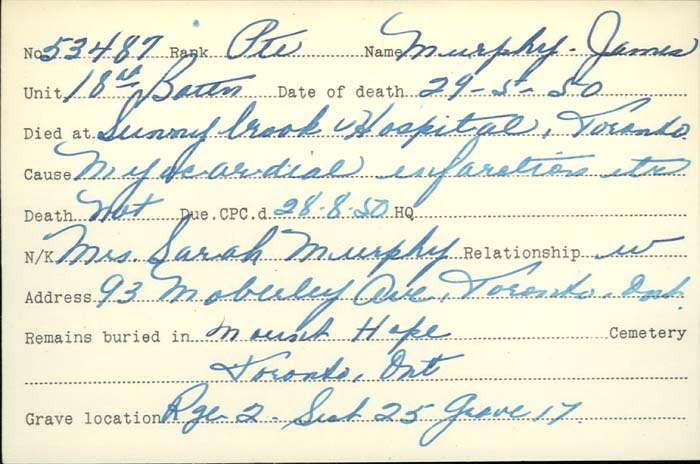 No 53487 Rank Pte Name Murphy - James
Unit 18th Battn Date of death 29-5-50
Died at Sunnybrook Hospital, Toronto.
Cause Myocardial infarction etc
Death Not Due. CPC.d 28-8-50 HQ
N/K Mrs. Sarah Murphy Relationship w
Address 93 Moberley Ave, Toronto, Ont.
Remains buried in Mount Hope Cemetery
Toronto, Ont
Grave location Rge 2 - Sect 25 Grave 17.